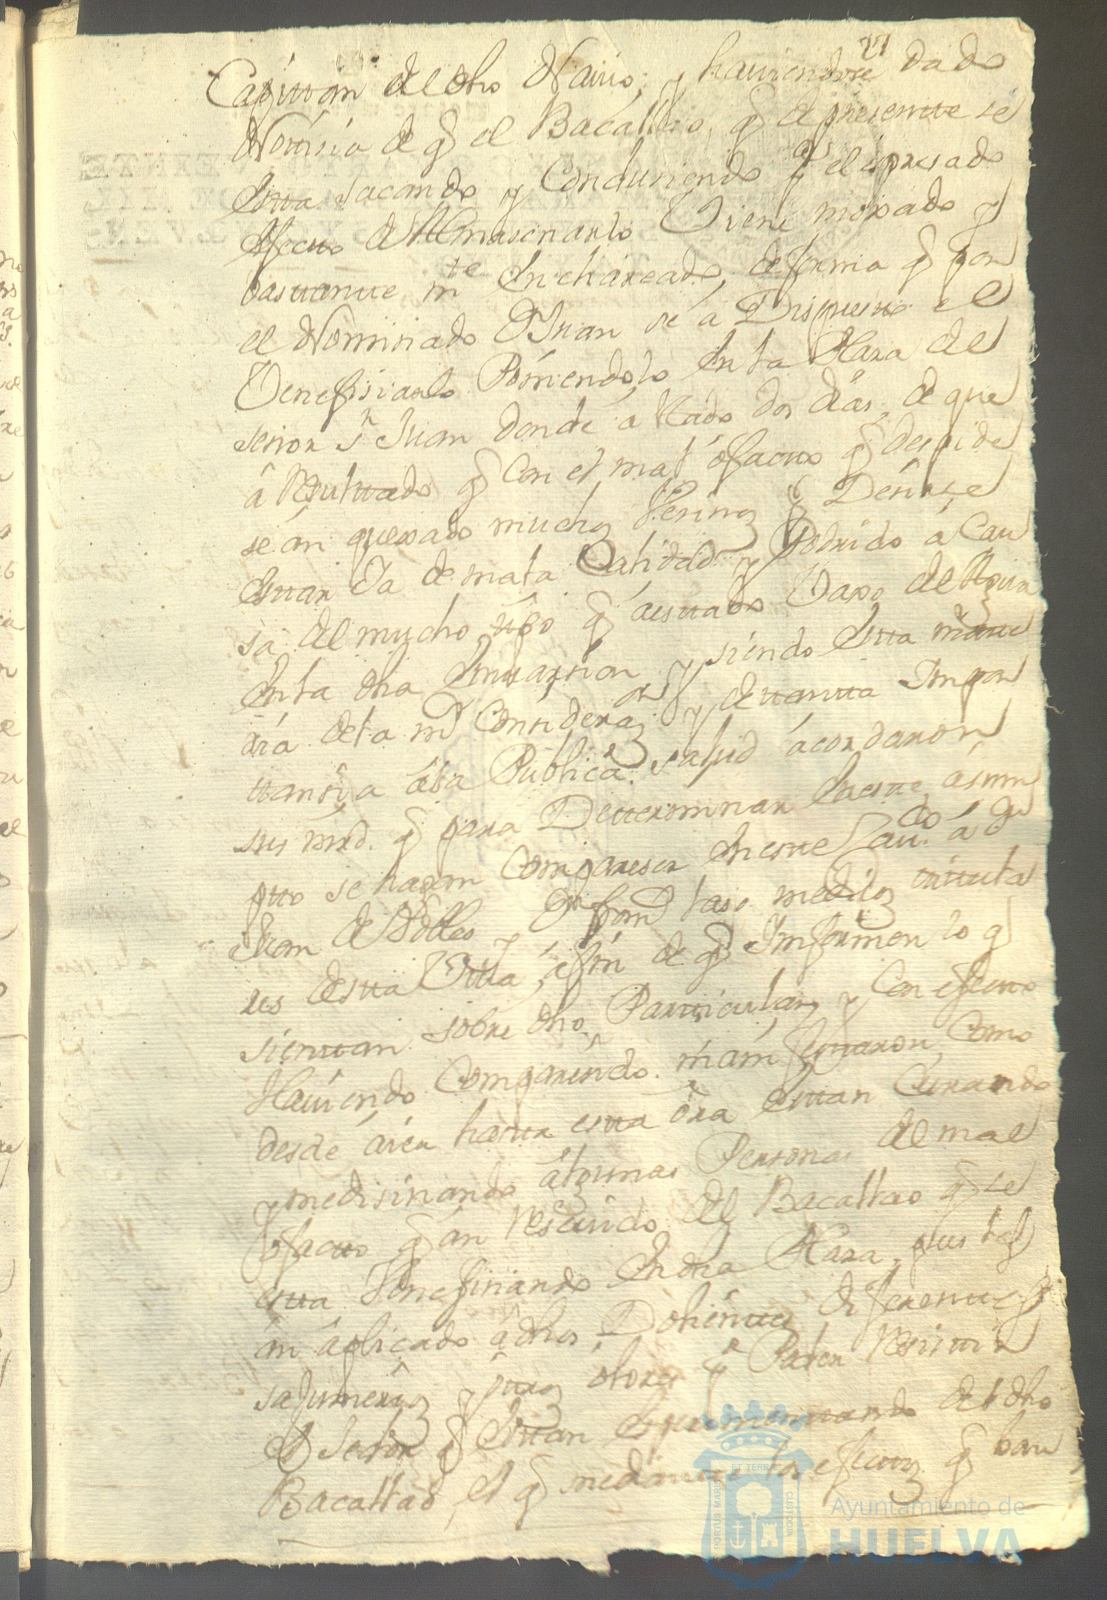 27
Capittan del dho Navio, y haviendose dado
Notisia de q̃ el Bacallao, q̃ de presente se
esta sacando y Condusiendo pª el espresado
efecto de Almasenarlo Viene moxado y
bastantte mte encharcado, de forma q̃ por
el Nominado Dn Juan se a Dispuesto el
Venefisiarlo Poniendolo en la Plasa del
señor Sn Juan donde a estado dos dias, de que
â Resultado q̃ Con el mal ofacto q̃ despide
se án quexado muchos Vesinos
estar Ya de mala Calidad y Podrido á Cau
sa del mucho tpo q̃ a estado Vaxo del Agua
en la dha embarsion y siendo esta mate
ria de la mr Considerazon y de tanta Impor
tansia á esta Publica salud ácordaron
sus mrd. q̃ para Determinar en este ásum
pto se hagan Compareser en este Cavdo á Dn
Juan de Robles y Dn Franco Laso medicos titula
res de esta Villa, á fin de q̃ Informen lo q̃
sienttan sobre dho Particular, y Con efecto
Haviendo Comparesido manifestaron, Como
desde áier hasta esta óra estan Curando
y medisinando algunas Personas del mal
ofacto q̃ án resevido del Bacallao q̃ se
esta Venefisiando en dha Plasa, pues les
án áplicado á dhos Dolientes diferentes
safumerios y otros olores pª Poder resistir
el fetor q̃ estan esperimentando del dho
Bacallao, el q̃ mediante los efectos q̃ bau
PORTUS MARIS ET TERRAE CUSTODIA
Ayuntamiento de
HUELVA